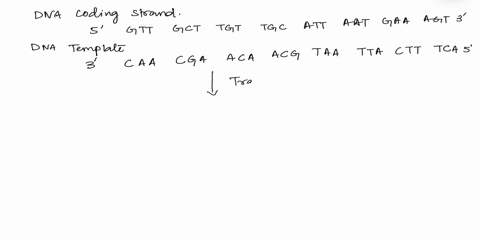 DNA coding strand.
5' GTT GCT TGT TGC ATT AAT GAA AGT 3'
DNA Template
3' CAA CGA ACA ACG TAA TTA CTT TCA 5'
Tra